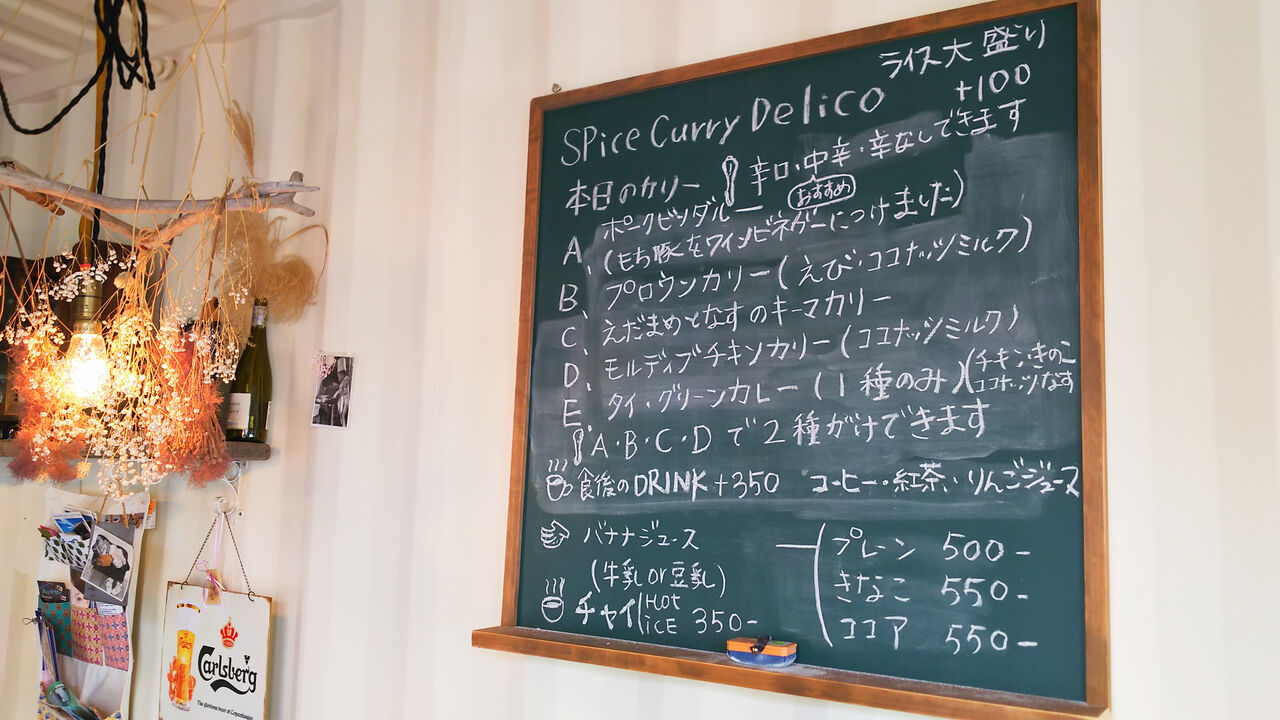 ライス大盛り
+100
SPice Curry Delico
本日のカリー 辛口・中辛・辛なしできます
おすすめ
A、ポークビンダルー
(もち豚をワインビネガーにつけました)
B、プロウンカリー(えび・ココナッツミルク)
C、えだまめとなすのキーマカリー
D、モルディブチキンカリー(ココナッツミルク)
E、タイ・グリーンカレー(1種のみ)(チキン・きのこ
ココナッツ・なす
A・B・C・Dで2種がけできます
食後のDRINK+350 コーヒー・紅茶・りんごジュース
バナナジュース
(牛乳or豆乳)
プレーン 500-
きなこ 550-
ココア 550-
チャイ(HOT
ICE 350-
Carlsberg